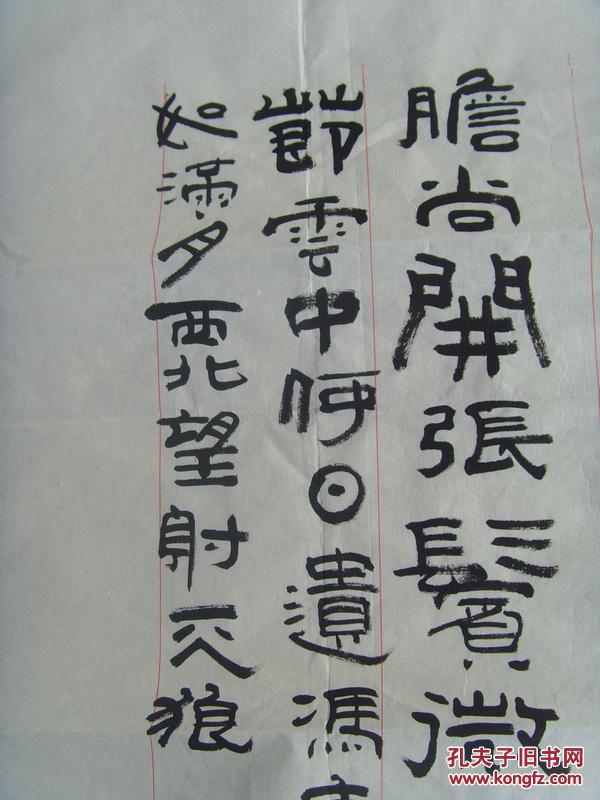 膽尚開張鬢微
節雲中何日遺馮
如滿月西北望射天狼
孔夫子旧书网
www.kongfz.com